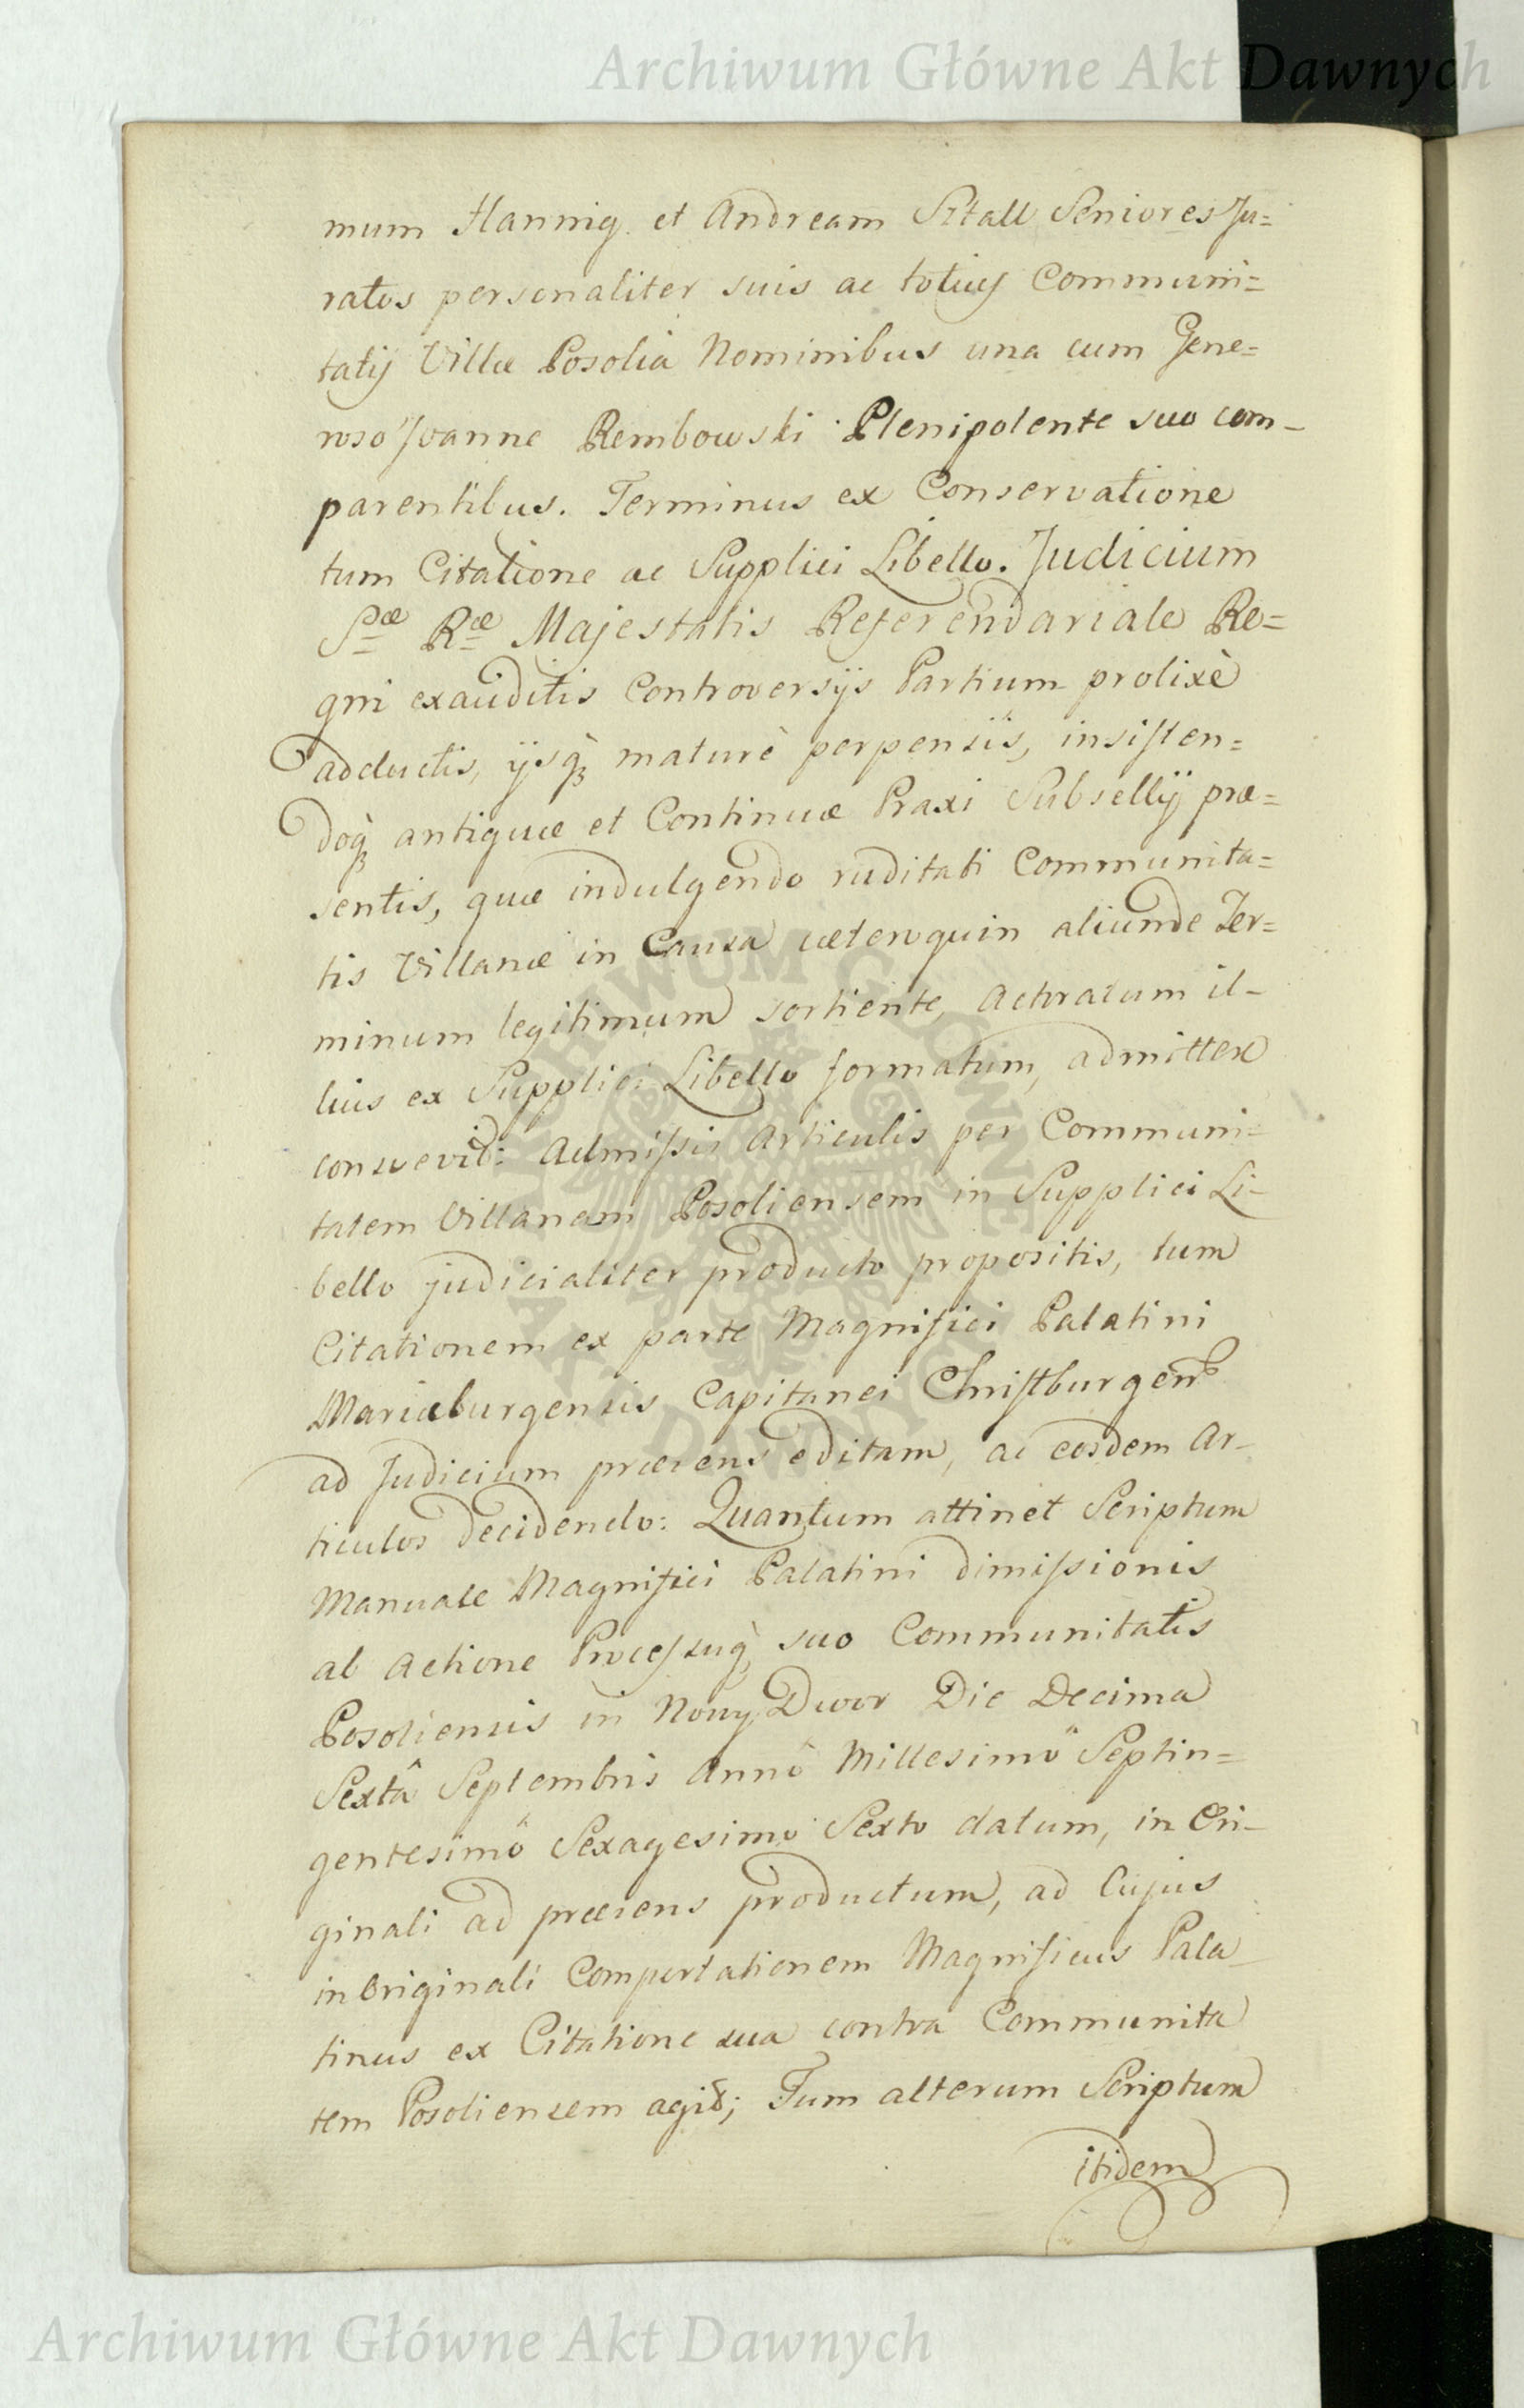 Archiwum Główne Akt Dawnych
mum Hannig et Andream Sztall Seniores Ju=
ratos personaliter suis ac totius Communi=
tatis Villæ Posolia Nominibus una cum Gene=
roso Joanne Rembowski Plenipotente suo com-
parentibus. Terminus ex Conservatione
tum Citatione ac Supplici Libello. Judicium
Sæ Ræ Majestatis Referendariale Re=
gni exauditis Controversijs Partium prolixè
adductis, ijsq̀ maturè perpensis, insisten=
doq̀ antiquæ et Continuæ Praxi Subsellij præ=
sentis, quæ indulgendo ruditati Communita=
tis Villanæ in Causa cæteroquin aliunde Ter=
minum legitimum sortiente, Actoratum il-
lius ex Supplici Libello formatum, admittere
consuevit: Admissis Articulis per Communi=
tatem Villanam Posoliensem in Supplici Li-
bello judicialiter producto propositis, tum
Citationem ex parte Magnifici Palatini
Mariæburgensis Capitanei Christburgens
ad Judicium præsens editam, ac eosdem Ar-
ticulos decidendo: Quantum attinet Scriptum
Manuale Magnifici Palatini dimissionis
ab Actione Processuq̀ suo Communitatis
Posoliensis in Nowy Dwor Die Decima
Sextâ Septembris Annô Millesimô Septin=
gentesimô Sexagesimo Sexto datum, in Ori-
ginali ad præsens productum, ad Cujus
in Originali Comportationem Magnificus Pala-
tinus ex Citatione sua contra Communita
tem Posoliensem agit; Tum alterum Scriptum
itidem
ARCHIWUM GŁÓWNE AKT DAWNYCH
Archiwum Główne Akt Dawnych